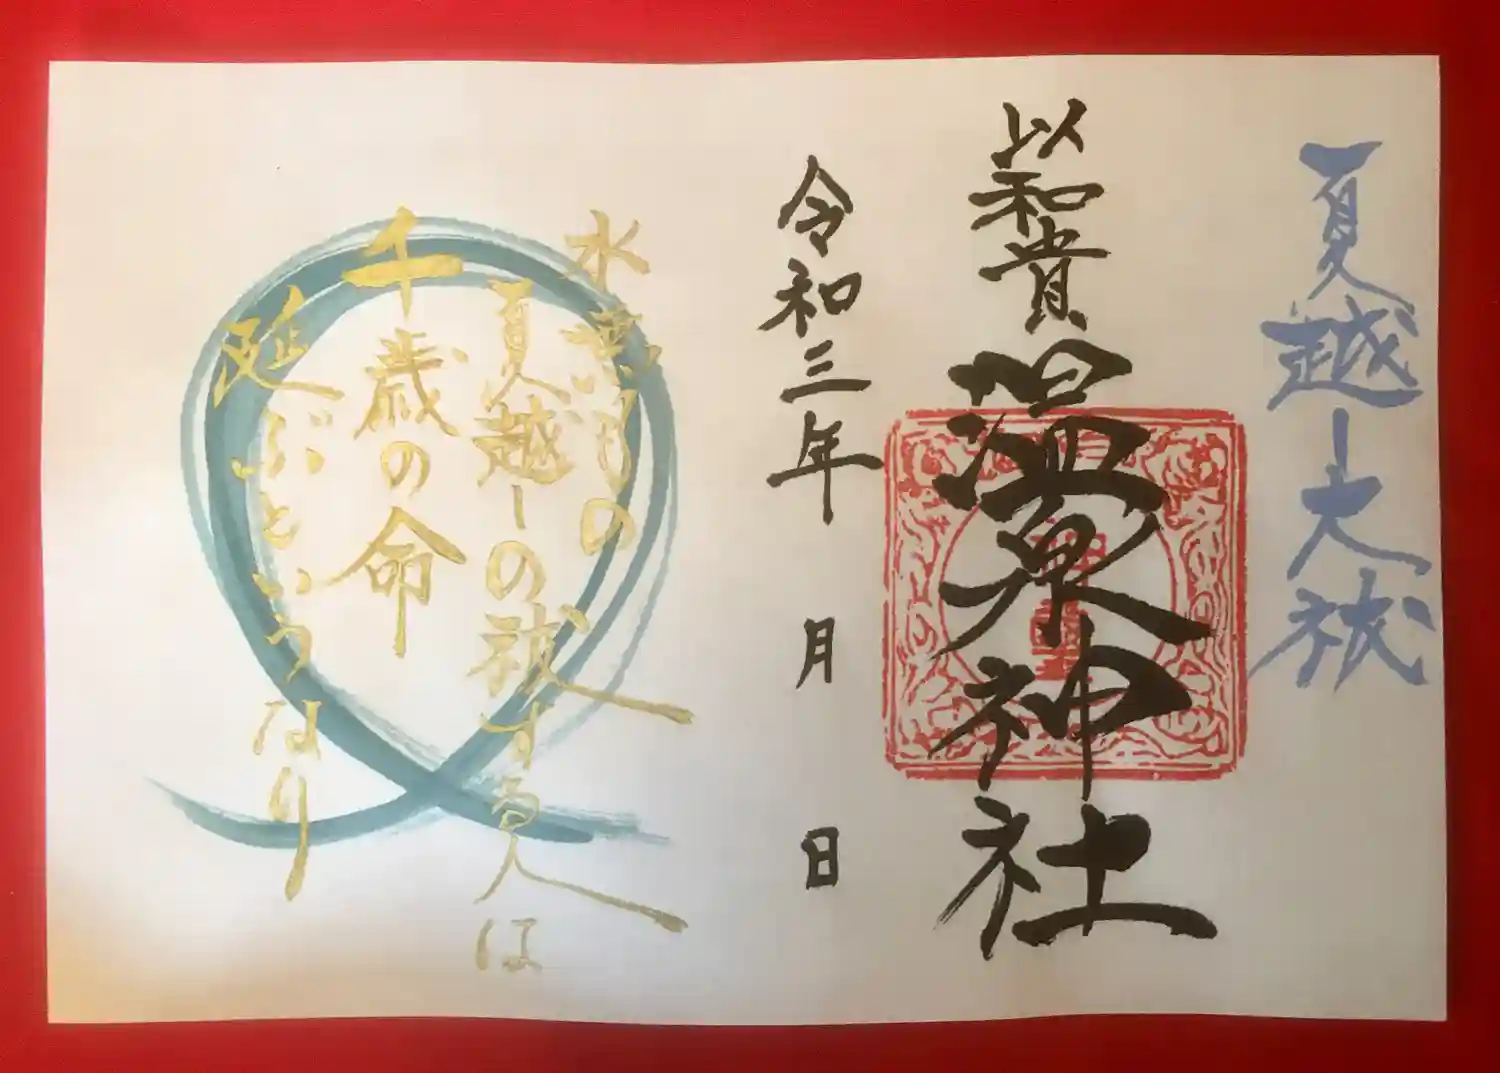 夏越し大祓
以和貴
温泉神社
令和三年 月 日
水無月の
夏越しの祓する人は
千歳の命
延ぶといふなり